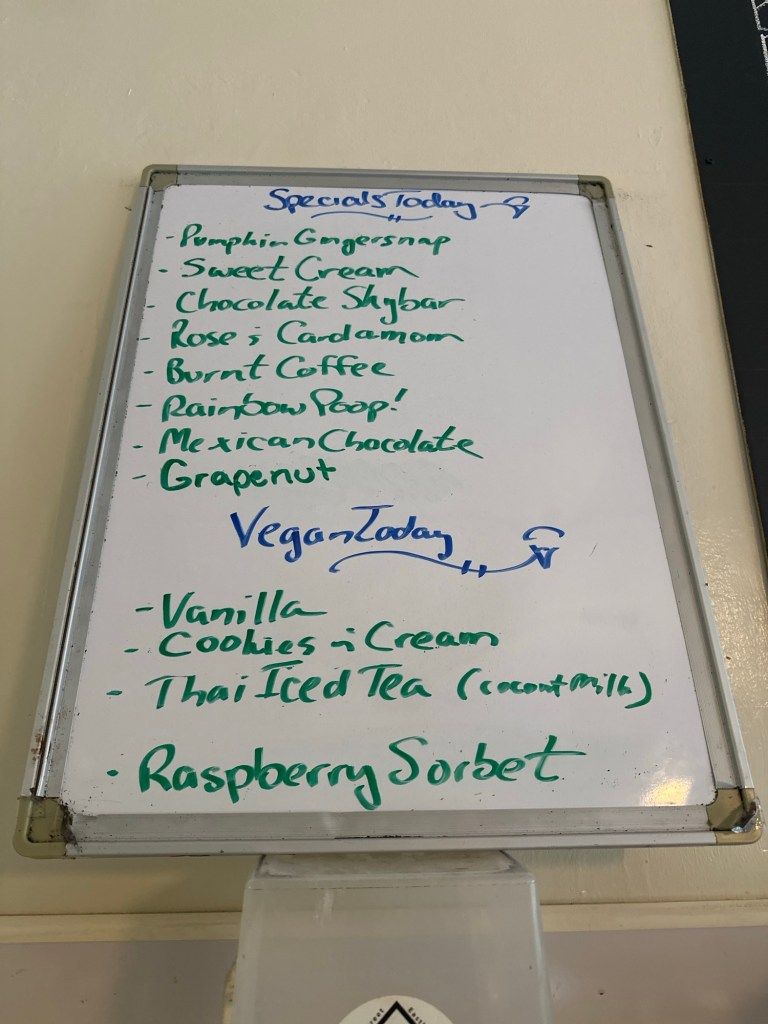 Specials Today
- Pumpkin Gingersnap
- Sweet Cream
- Chocolate Skybar
- Rose & Cardamom
- Burnt Coffee
- Rainbow Poop!
- Mexican Chocolate
- Grapenut
Vegan Today
- Vanilla
- Cookies & Cream
- Thai Iced Tea (coconut milk)
- Raspberry Sorbet